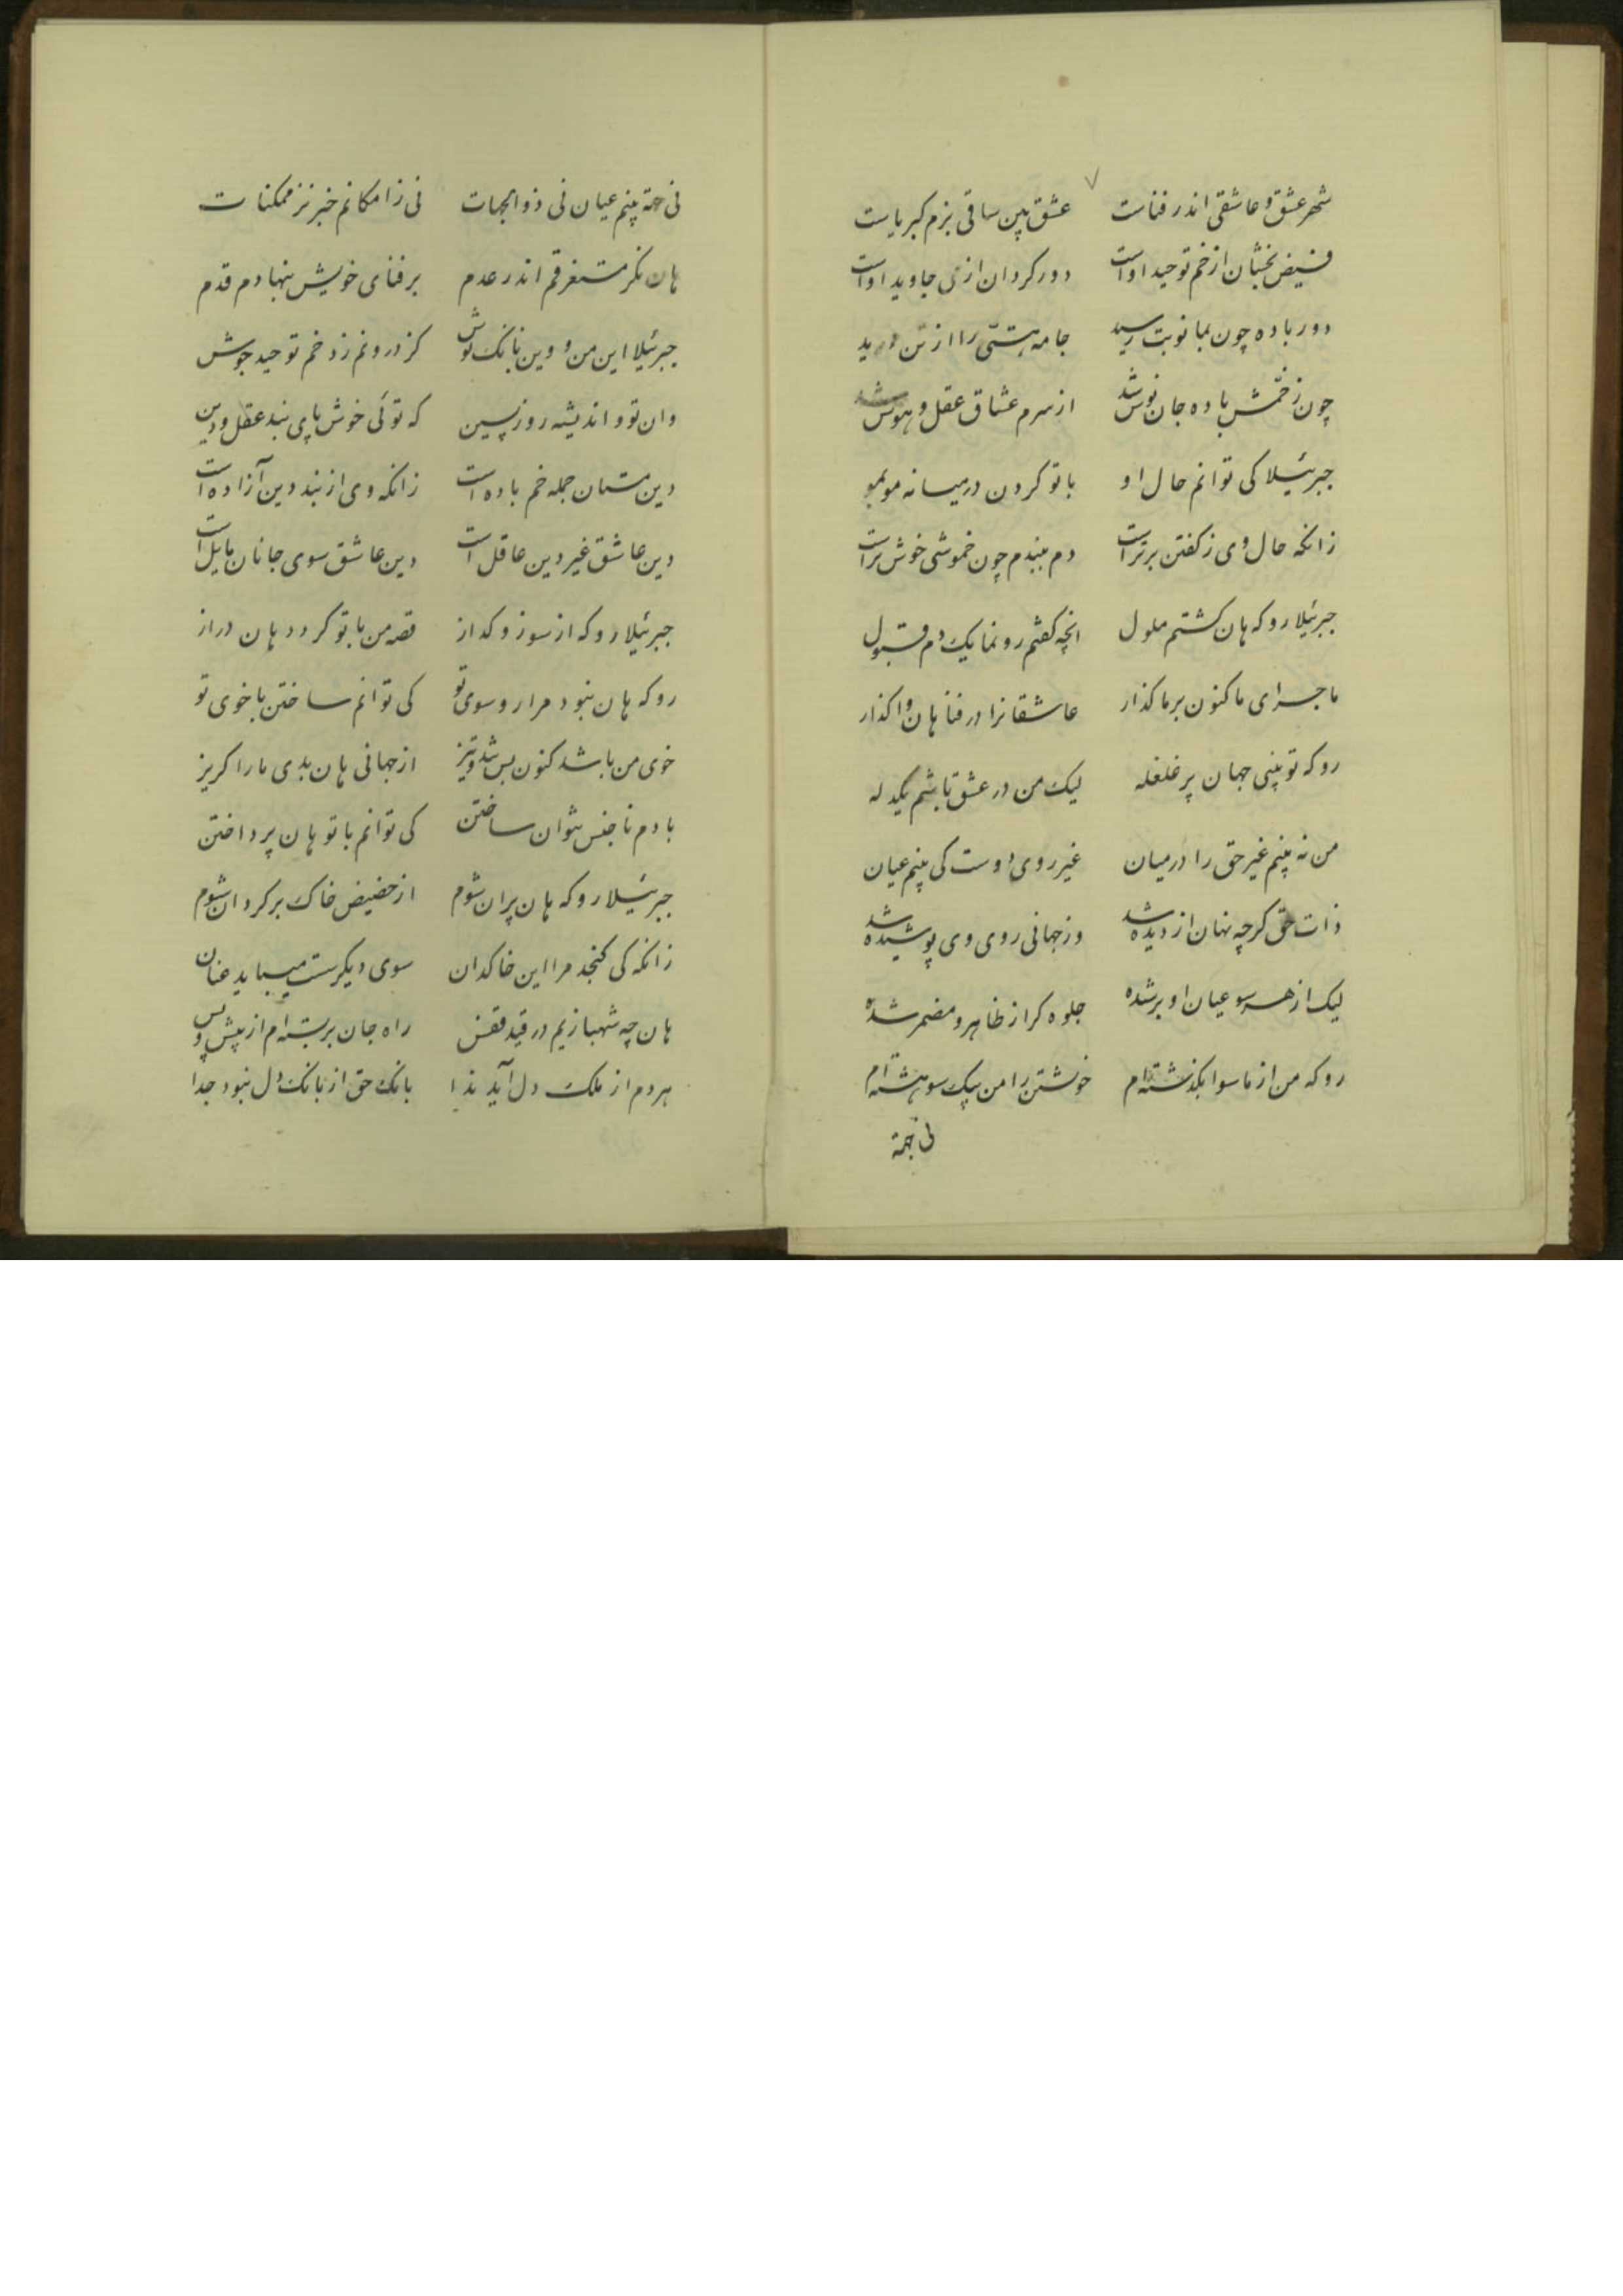 شهر عشق و عاشقی اندر فناست عشق بین ساقی بزم کبریاست
فیض بخشان از خم توحید اواست دور کردان از می جاوید اواست
دور باده چون بما نوبت رسید جامه هستی را از تن درید
چون ز خمش باده جان نوش شد از سرم عشاق عقل و هوش شد
جبرئیلا کی توانم حال او با تو کردن در میانه مو بمو
زانکه حال وی ز کفتن برتر است دم ببندم چون خموشی خوش تراست
جبرئیلا رو که هان کشتم ملول انچه کفتم رو نما یک دم قبول
ماجرای ما کنون بر ما کذار عاشقانرا در فنا هان واکذار
رو که تو بینی جهان پر غلغله لیک من در عشق باشم یکدله
من نه بینم غیر حق را در میان غیر روی دوست کی بینم عیان
ذات حق کرچه نهان از دیده شد وز جهانی روی وی پوشیده شد
لیک از هر سو عیان او بر شده جلوه کر از ظاهر و مضمر شده
رو که من از ماسوا بکذشته‌ام خوشتن را من بیک سو هشته‌ام
نی جهة
نی جهة بینم عیان نی ذوالجهات نی ز امکانم خبر نز ممکنات
هان نکر مستغرقم اندر عدم بر فنای خویش بنهادم قدم
جبرئیلا این من و وین بانک نوش کز درونم زد خم توحید جوش
وان تو و اندیشه روز پسین که توئی خوش پای بند عقل و دین
دین مستان جمله خم باده است زانکه وی از بند دین آزاده است
دین عاشق غیر دین عاقل است دین عاشق سوی جانان مایل است
جبرئیلا رو که از سوز و کداز قصه من با تو کردد هان دراز
رو که هان نبود مرا رو سوی تو کی توانم ساختن با خوی تو
خوی من باشد کنون بس تند و تیز از جهانی هان بدی ما را کریز
با دم ناجنس نتوان ساختن کی توانم با تو هان پرداختن
جبرئیلا رو که هان پران شوم از حضیض خاک بر کردان شوم
زانکه کی کنجد مرا این خاکدان سوی دیکرست میباید عنان
هان چه شهبازیم در قید قفس راه جان بر بسته‌ام از پیش و پس
هر دم از ملک دل آید ندا بانک حق از بانک دل نبود جدا